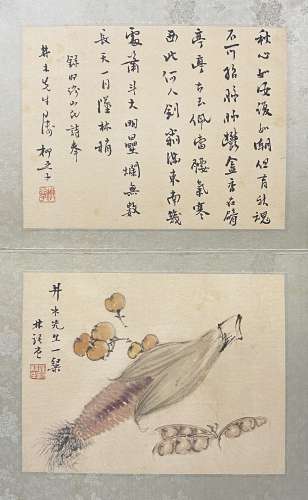 秋心如海復如潮但有秋魂
不可招漠漠鬱金香在臂
亭亭古玉佩當腰氣寒
西北何人劍聲滿東南幾
處簫斗大明星爛無數
長天一月墜林梢
錄
詩奉
井木先生
柳亞子
井木先生一粲